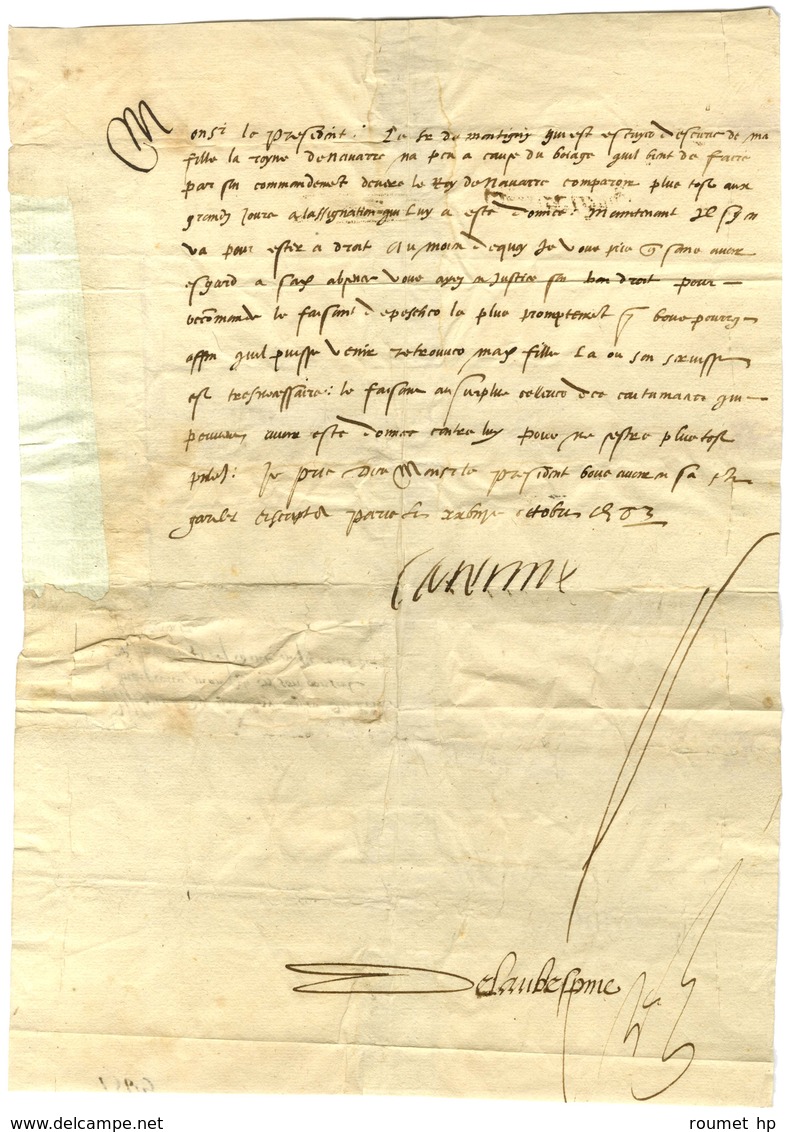 Monsr le president. Le sr de montigny qui est escuyer descuirie de ma
fille la royne de navarre na peu a cause du voiage quil vint de faire
par son commandement devers le Roy de Navarre comparoir plus tost aux
grandz jours a lassignation qui luy a esté donnee. Maintenant Il sy en
va pour ester a droit Au moien dequoy Je vous prie que sans avoir
esgard a sad absence vous ayez en justice son bon droit pour
recommandé le faisant depescher le plus promptement que vous pourrez
affin quil puisse venir retrouver mad fille La ou son service
est tresnecessaire: le faisant au surplus relever de ce contumaces qui
peuvent avoir esté donnee contre luy pour ne sestre plus tost
pnté: Je prie Dieu Monsr le president vous avoir en sa ste
garde Escript a Paris le octobre 1583
Caterine
Delaubespine
roumet hp